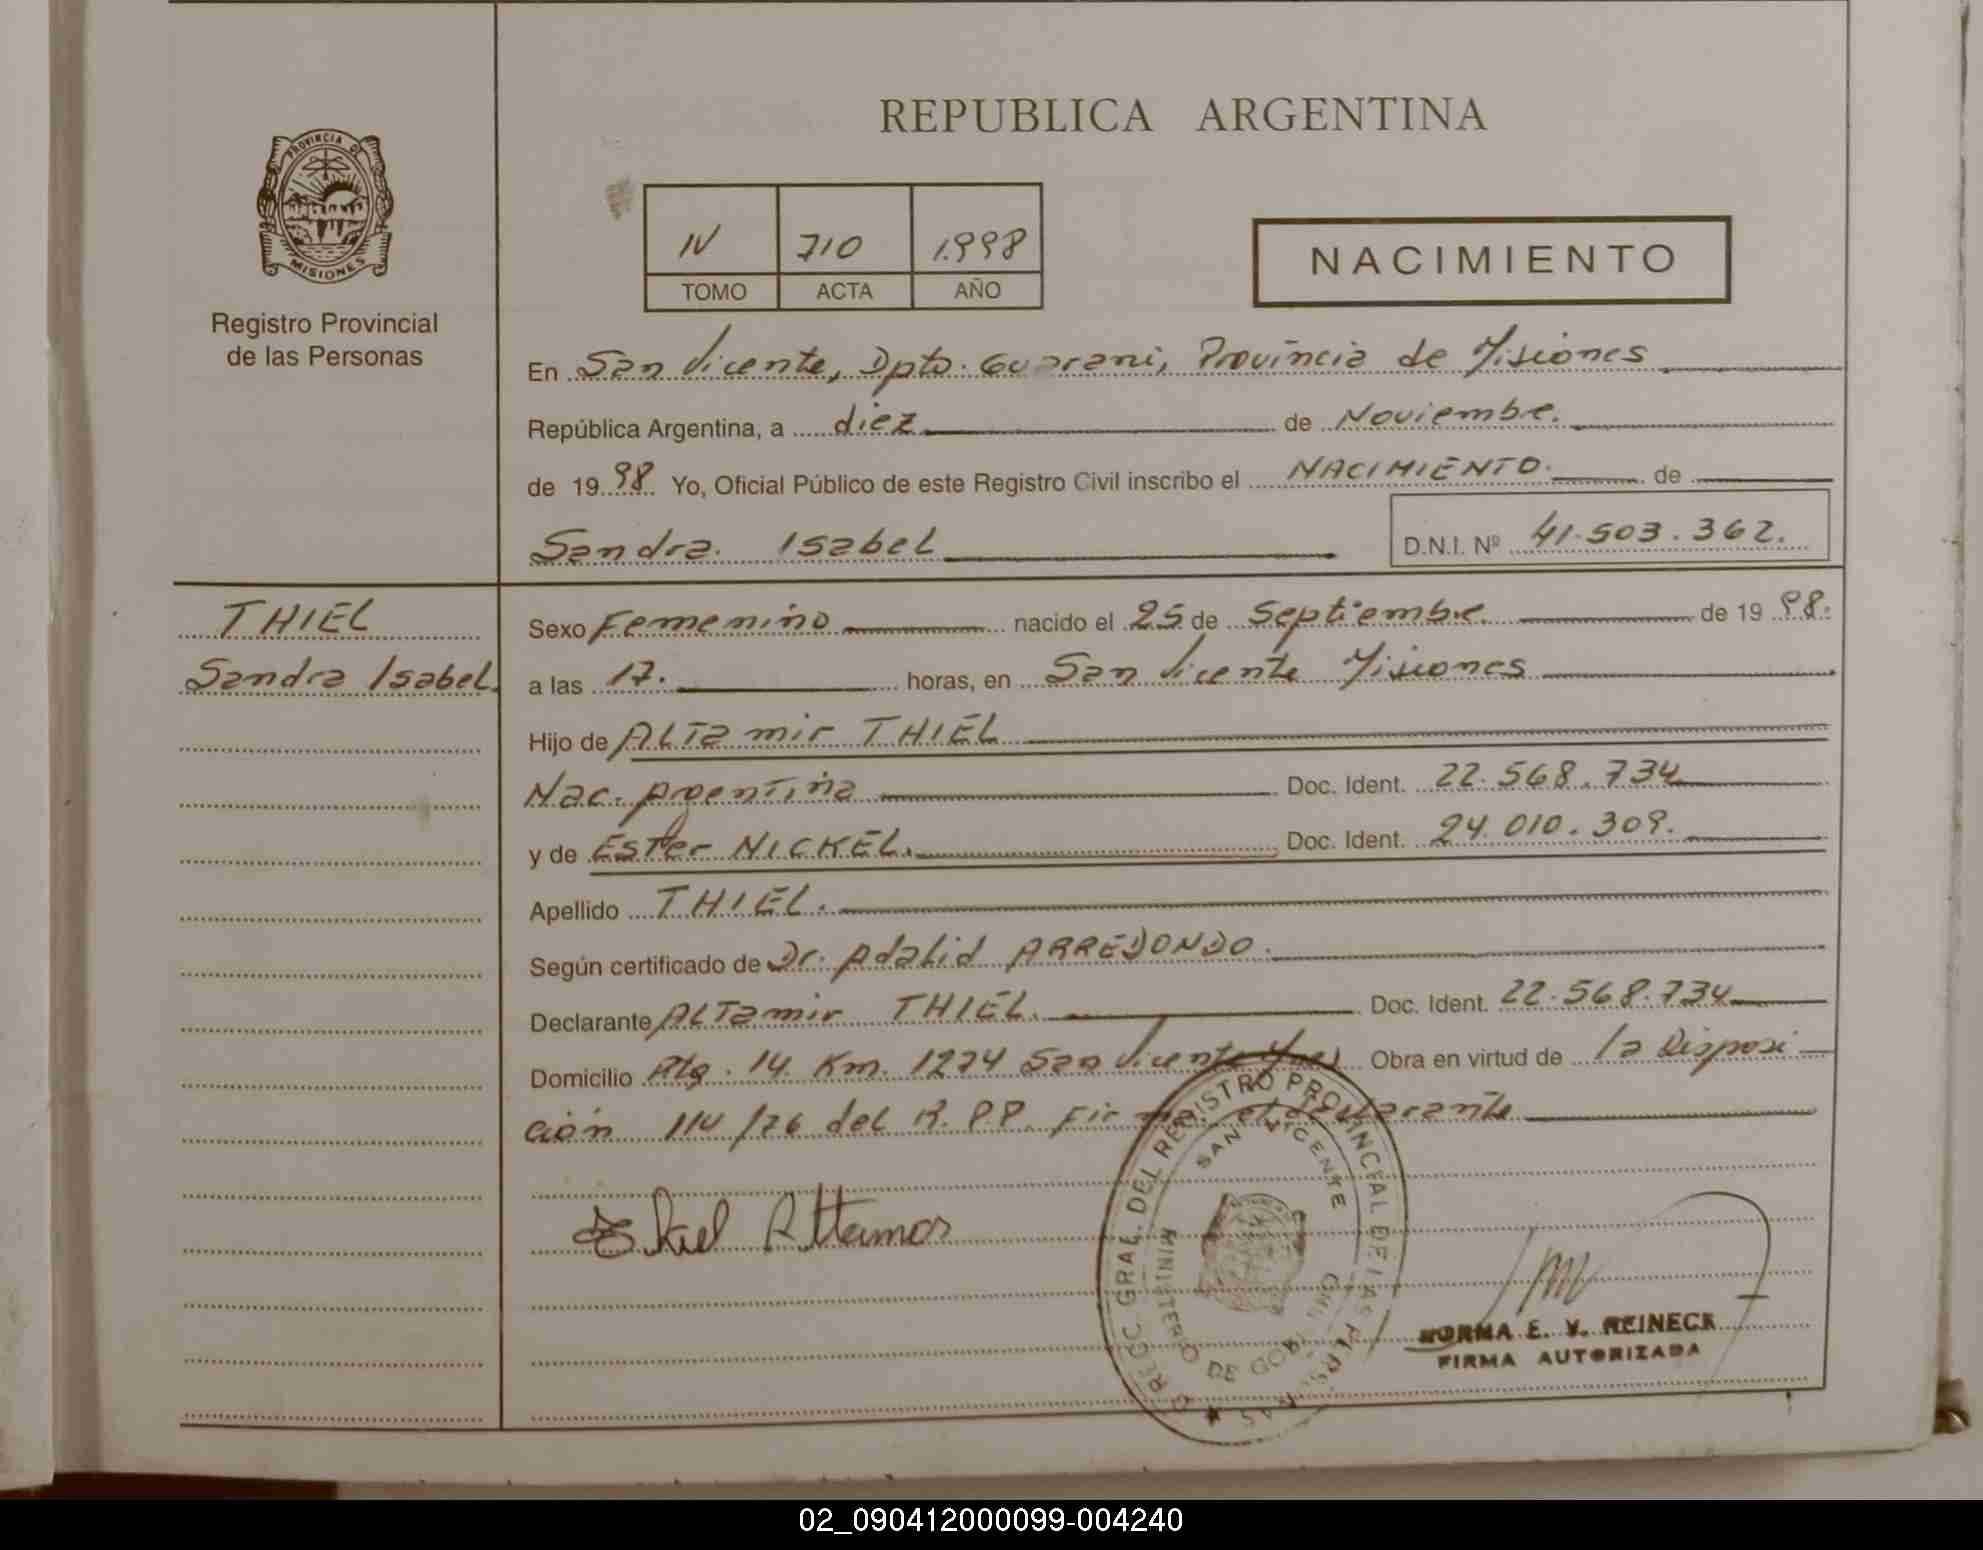 REPUBLICA ARGENTINA
PROVINCIA DE
MISIONES
Registro Provincial
de las Personas
IV 710 1.998
TOMO ACTA AÑO
NACIMIENTO
En San Vicente, Dpto. Guarani, Provincia de Misiones
República Argentina, a diez de Noviembre.
de 1998 Yo, Oficial Público de este Registro Civil inscribo el NACIMIENTO. de
Sandra Isabel D.N.I. Nº 41.503.362.
THIEL
Sandra Isabel.
Sexo Femenino nacido el 25 de Septiembre. de 1998.
a las 17. horas, en San Vicente Misiones
Hijo de ALTamir THIEL
Nac. Argentina Doc. Ident. 22.568.734
y de Ester NICKEL. Doc. Ident. 24.010.309.
Apellido THIEL.
Según certificado de Dr. Adalid ARREDONDO.
Declarante ALTamir THIEL. Doc. Ident. 22.568.734
Domicilio Rta. 14. Km. 1274 San Vicente Mnes. Obra en virtud de la Disposi
ción 114/76 del R.P.P. Firma el declarante
DEL REGISTRO PROVINCIAL DE LAS PERSONAS
SAN VICENTE
MINISTERIO DE GOB
NORMA E. V. REINECK
FIRMA AUTORIZADA
02_090412000099-004240